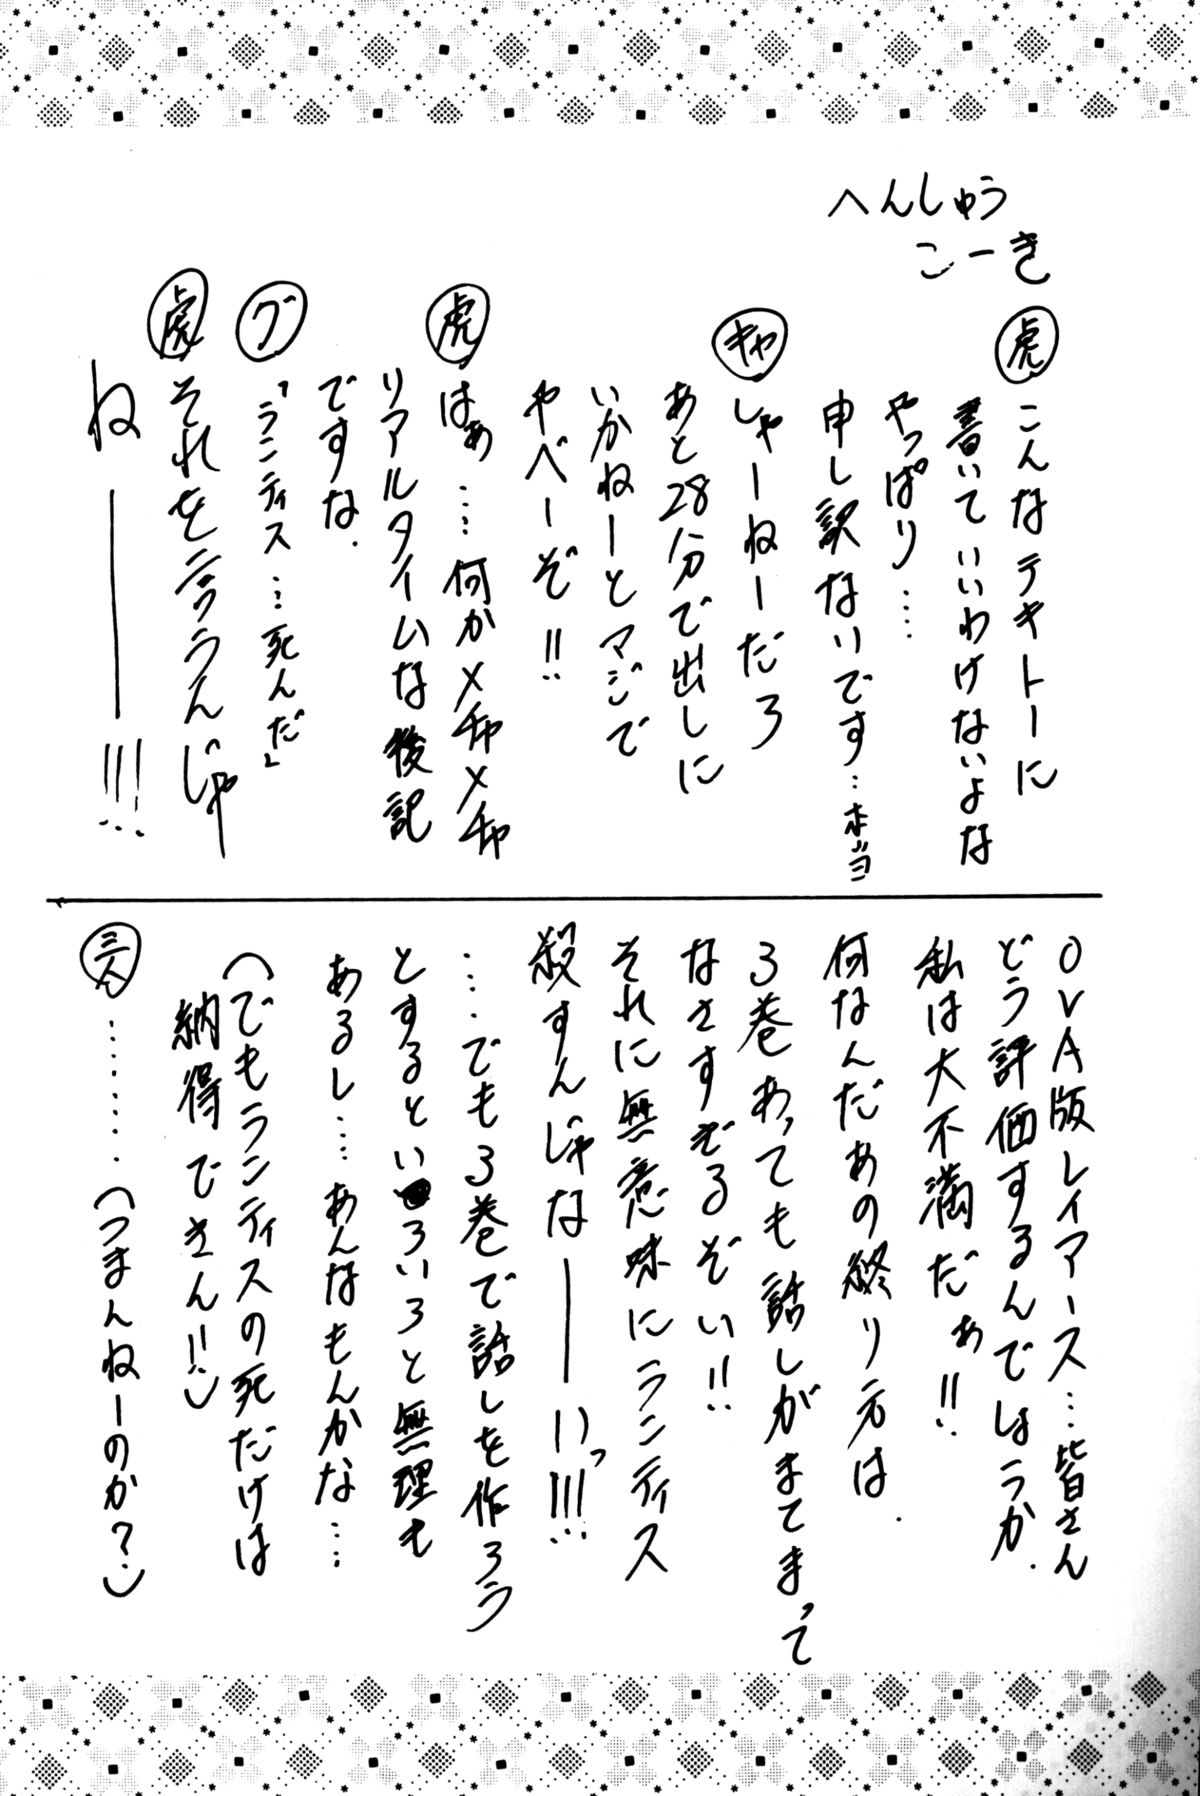 へんしゅう
こーき
虎 こんなテキトーに
書いていいわけないよな
やっぱり‥‥
申し訳ないです…本当
キャ しゃーねーだろ
あと28分で出しに
いかねーとマジで
やべーぞ!!
虎 はぁ‥‥何かメチャメチャ
リアルタイムな後記
ですな.
グ 「ランティス…死んだ」
虎 それを言うんじゃ
ねーーー!!!
OVA版レイアース…皆さん
どう評価するんでしょうか.
私は大不満だぁ!!
何なんだあの終り方は.
3巻あっても話しがまてまって
なさすぎるぞい!!
それに無意味にランティス
殺すんじゃなーーいっ!!!
‥‥でも3巻で話しを作ろう
とするといろいろと無理も
あるし‥‥あんなもんかな‥‥
(でもランティスの死だけは
納得できん!!)
三人 ‥‥‥‥(つまんねーのか?)